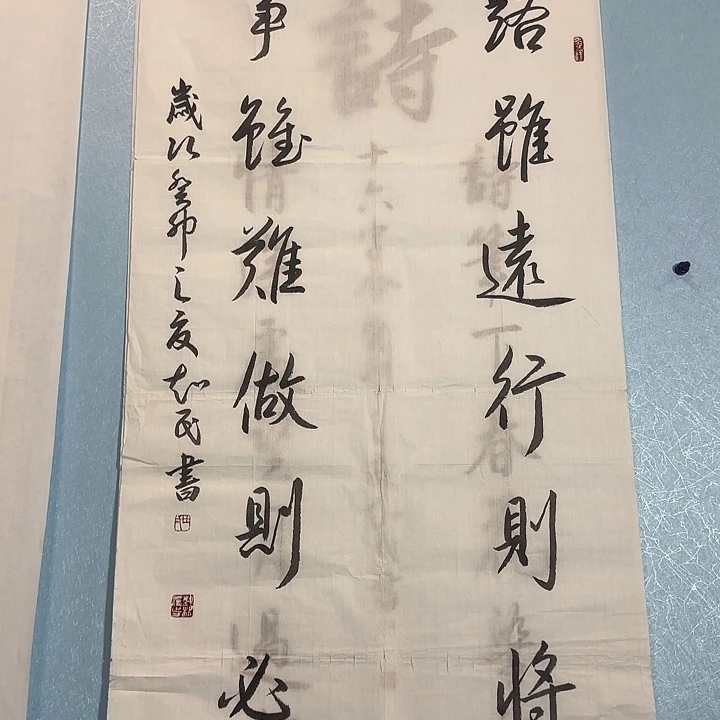 路雖遠行則將
事雖難做則必
歲次癸卯之夏知民書
詩